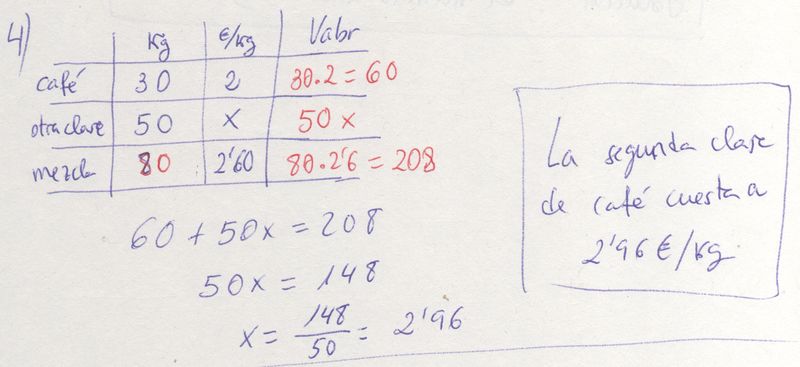 4)
Kg €/Kg Valor
café 30 2 30·2 = 60
otra clase 50 x 50x
mezcla 80 2'60 80·2'6 = 208
60 + 50x = 208
50x = 148
x = 148/50 = 2'96
La segunda clase
de café cuesta a
2'96 €/Kg.